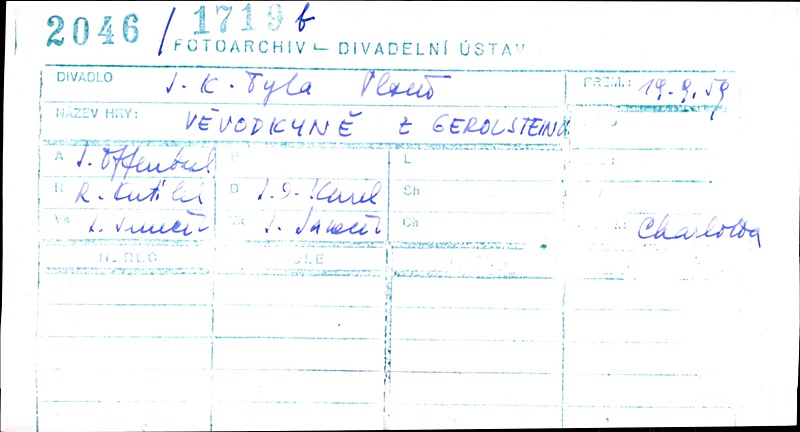 2046 / 1719 b
FOTOARCHIV — DIVADELNÍ ÚSTAV
DIVADLO J. K. Tyla Plzeň PREM.: 19.9.59
NÁZEV HRY: VÉVODKYNĚ Z GEROLSTEINU
A J. Offenbach P L
R R. Kutílek D J. O. Karel Sh
Vs Ch Charlotta
HEREC